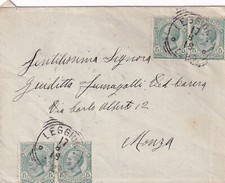 LEGGIUNO
Gentilissima Signora
Giuditta Fumagalli Ed-Carera
Via Carlo Alberto 12
LEGGIUNO
Monza